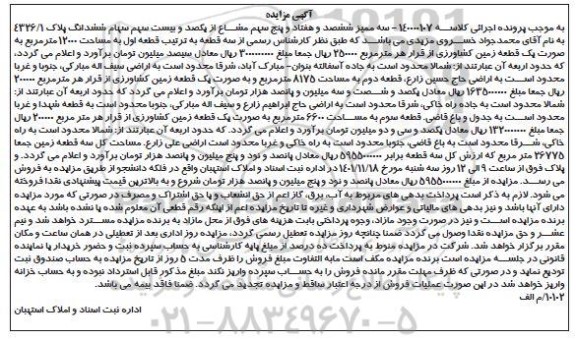 آگهی مزایده
به موجب پرونده اجرائی کلاسه ۱۴۰۰۰۰۱۰۷ - سه ممیز ششصد و هفتاد و پنج سهم مشاع از یکصد و بیست سهم سهام ششدانگ پلاک ۴۳۲۶/۱
به نام آقای محمدجواد خسروی مزیدی می باشد. که طبق نظر کارشناس رسمی از سه قطعه به ترتیب قطعه اول به مساحت ۱۲۰۰۰ مترمربع به
صورت یک قطعه زمین کشاورزی از قرار هر مترمربع ۲۵۰۰۰۰ ریال جمعا مبلغ ۳۰۰۰۰۰۰۰۰۰ ریال معادل سیصد میلیون تومان برآورد و اعلام می گردد،
که حدود اربعه آن عبارتند از: شمالا محدود است به جاده آسفالته بنوان - مبارک آباد، شرقا محدود است به اراضی سیف اله مبارکی، جنوبا و غربا
محدود است به اراضی حاج حسن زارع. قطعه دوم به مساحت ۸۱۷۵ مترمربع و به صورت یک قطعه زمین کشاورزی از قرار هر مترمربع ۲۰۰۰۰۰
ریال جمعا مبلغ ۱۶۳۵۰۰۰۰۰۰ ریال معادل یکصد و شصت و سه میلیون و پانصد هزار تومان برآورد و اعلام می گردد که حدود اربعه آن عبارتند از:
شمالا محدود است به جاده خاکی، شرقا محدود است به اراضی حاج ابراهیم زارع و سیف اله مبارکی، جنوبا محدود است به قطعه شهدا و غربا
محدود است به جدول و باغ قاضی. قطعه سوم به مساحت ۶۶۰۰ مترمربع به صورت یک قطعه زمین کشاورزی از قرار هر متر مربع ۲۰۰۰۰۰ ریال
جمعا مبلغ ۱۳۲۰۰۰۰۰۰۰ ریال معادل یکصد و سی و دو میلیون تومان برآورد و اعلام می گردد. که حدود اربعه آن عبارتند از: شمالا محدود است به راه
خاکی، شرقا محدود است به باغ قاضی، جنوبا محدود است به راه خاکی و غربا محدود است اراضی علی زارع. مساحت کل سه قطعه زمین جمعا
۲۶۷۷۵ متر مربع که ارزش کل سه قطعه برابر ۵۹۵۵۰۰۰۰۰۰ ریال معادل پانصد و نود و پنج میلیون و پانصد هزار تومان برآورد و اعلام می گردد. و
پلاک فوق از ساعت ۹ الی ۱۲ روز سه شنبه مورخ ۱۴۰۱/۱۱/۱۸ در اداره ثبت اسناد و املاک استهبان واقع در فلکه دانشجو از طریق مزایده به فروش
می رسد. مزایده از مبلغ ۵۹۵۵۰۰۰۰۰۰ ریال معادل پانصد و نود و پنج میلیون و پانصد هزار تومان شروع و به بالاترین قیمت پیشنهادی نقدا فروخته
می شود. لازم به ذکر است پرداخت بدهی های مربوط به آب، برق، گاز اعم از حق انشعاب و یا حق اشتراک و مصرف در صورتی که مورد مزایده
دارای آنها باشد و نیز بدهی های مالیاتی و عوارض شهرداری و غیره تا تاریخ مزایده اعم از اینکه رقم قطعی آن معلوم شده یا نشده باشد به عهده
برنده مزایده است و نیز در صورت وجود مازاد، وجوه پرداختی بابت هزینه های فوق از محل مازاد به برنده مزایده مسترد خواهد شد و نیم
عشر و حق مزایده نقدا وصول می گردد ضمنا چنانچه روز مزایده تعطیل رسمی گردد، مزایده روز اداری بعد از تعطیلی در همان ساعت و مکان
مقرر برگزار خواهد شد. شرکت در مزایده منوط به پرداخت ده درصد از مبلغ پایه کارشناسی به حساب سپرده ثبت و حضور خریدار یا نماینده
قانونی در جلسه مزایده است برنده مزایده مکلف است مابه التفاوت مبلغ فروش را ظرف مدت ۵ روز از تاریخ مزایده به حساب صندوق ثبت
تودیع نماید و در صورتی که ظرف مهلت مقرر مانده فروش را به حساب سپرده واریز نکند مبلغ مذکور قابل استرداد نبوده و به حساب خزانه
واریز خواهد شد در این صورت عملیات فروش از درجه اعتبار ساقط و مزایده تجدید می گردد. ضمنا فاقد بیمه می باشد.
۱۰۱۰۲/م الف
اداره ثبت اسناد و املاک استهبان
۰۲۱-۸۸۳۴۹۶۷۰-۵